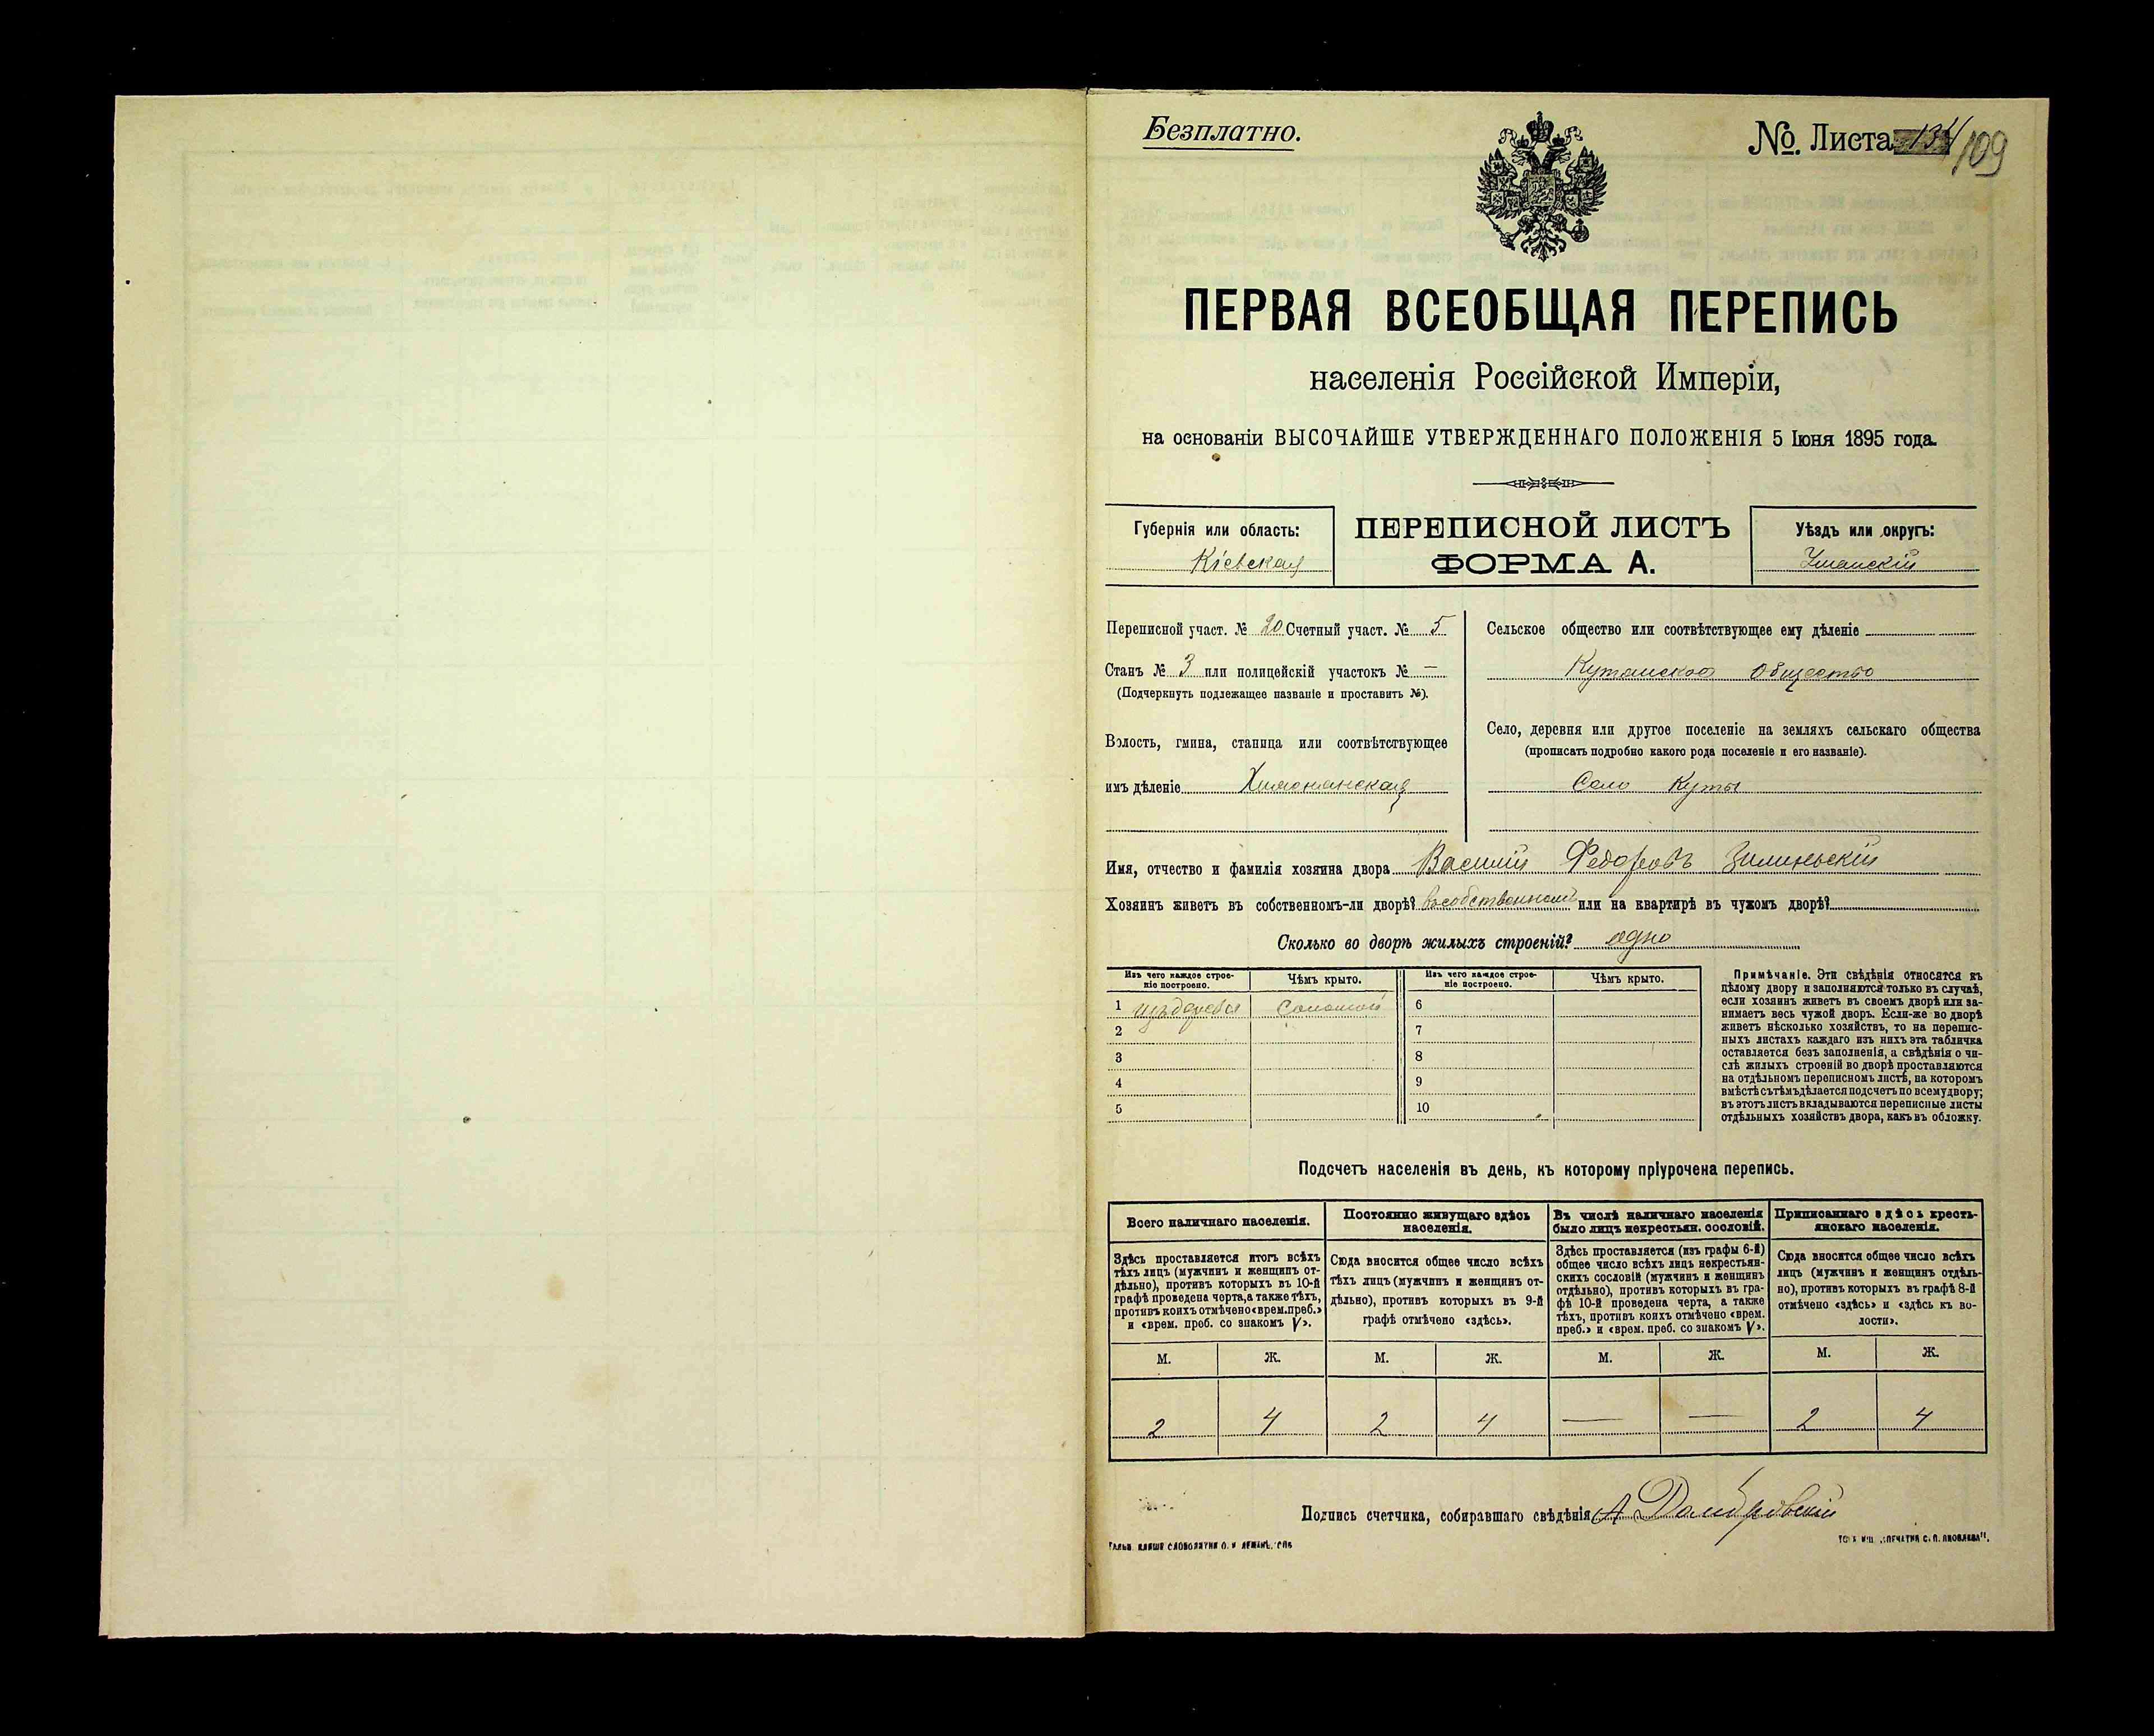 Безплатно.
№ Листа 134/109
ПЕРВАЯ ВСЕОБЩАЯ ПЕРЕПИСЬ
населенія Россійской Имперіи,
на основаніи ВЫСОЧАЙШЕ УТВЕРЖДЕННАГО ПОЛОЖЕНІЯ 5 Іюня 1895 года.
Губернія или область:
Кіевская
ПЕРЕПИСНОЙ ЛИСТЪ
ФОРМА А.
Уѣздъ или округъ:
Уманскій
Переписной участ. № 20 Счетный участ. № 5
Станъ № 3 или полицейскій участокъ № —
(Подчеркнуть подлежащее названіе и проставить №).
Волость, гмина, станица или соотвѣтствующее
имъ дѣленіе
Сельское общество или соотвѣтствующее ему дѣленіе
Кутянское Общество
Село, деревня или другое поселеніе на земляхъ сельскаго общества
(прописать подробно какого рода поселеніе и его названіе).
Село Куты
Имя, отчество и фамилія хозяина двора Василій Федоровъ Зилиньскій
Хозяинъ живетъ въ собственномъ-ли дворѣ? въ собственномъ или на квартирѣ въ чужомъ дворѣ?
Сколько во дворѣ жилыхъ строеній? одно
Изъ чего каждое строе-
ніе построено.
Чѣмъ крыто.
Изъ чего каждое строе-
ніе построено.
Чѣмъ крыто.
1 изъ дерева Соломой 6
2 7
3 8
4 9
5 10
Примѣчаніе. Эти свѣдѣнія относятся къ
цѣлому двору и заполняются только въ случаѣ,
если хозяинъ живетъ въ своемъ дворѣ или за-
нимаетъ весь чужой дворъ. Если-же во дворѣ
живетъ нѣсколько хозяйствъ, то на перепис-
ныхъ листахъ каждаго изъ нихъ эта табличка
оставляется безъ заполненія, а свѣдѣнія о чи-
слѣ жилыхъ строеній во дворѣ проставляются
на отдѣльномъ переписномъ листѣ, на которомъ
вмѣстѣ съ тѣмъ дѣлается подсчетъ по всему двору;
въ этотъ листъ вкладываются переписные листы
отдѣльныхъ хозяйствъ двора, какъ въ обложку.
Подсчетъ населенія въ день, къ которому пріурочена перепись.
Всего наличнаго населенія.
Здѣсь проставляется итогъ всѣхъ
тѣхъ лицъ (мужчинъ и женщинъ от-
дѣльно), противъ которыхъ въ 10-й
графѣ проведена черта, а также тѣхъ,
противъ коихъ отмѣчено «врем. преб.»
и «врем. преб. со знакомъ V».
Постоянно живущаго здѣсь
населенія.
Сюда вносится общее число всѣхъ
тѣхъ лицъ (мужчинъ и женщинъ от-
дѣльно), противъ которыхъ въ 9-й
графѣ отмѣчено «здѣсь».
Въ числѣ наличнаго населенія
было лицъ некрестьян. сословій.
Здѣсь проставляется (изъ графы 6-й)
общее число всѣхъ лицъ некрестьян-
скихъ сословій (мужчинъ и женщинъ
отдѣльно), противъ которыхъ въ гра-
фѣ 10-й проведена черта, а также
тѣхъ, противъ коихъ отмѣчено «врем.
преб.» и «врем. преб. со знакомъ V».
Приписаннаго здѣсь кресть-
янскаго населенія.
Сюда вносится общее число всѣхъ
лицъ (мужчинъ и женщинъ отдѣль-
но), противъ которыхъ въ графѣ 8-й
отмѣчено «здѣсь» и «здѣсь къ во-
лости».
М. Ж. М. Ж. М. Ж. М. Ж.
2 4 2 4 — — 2 4
Подпись счетчика, собиравшаго свѣдѣнія А Домбровскій